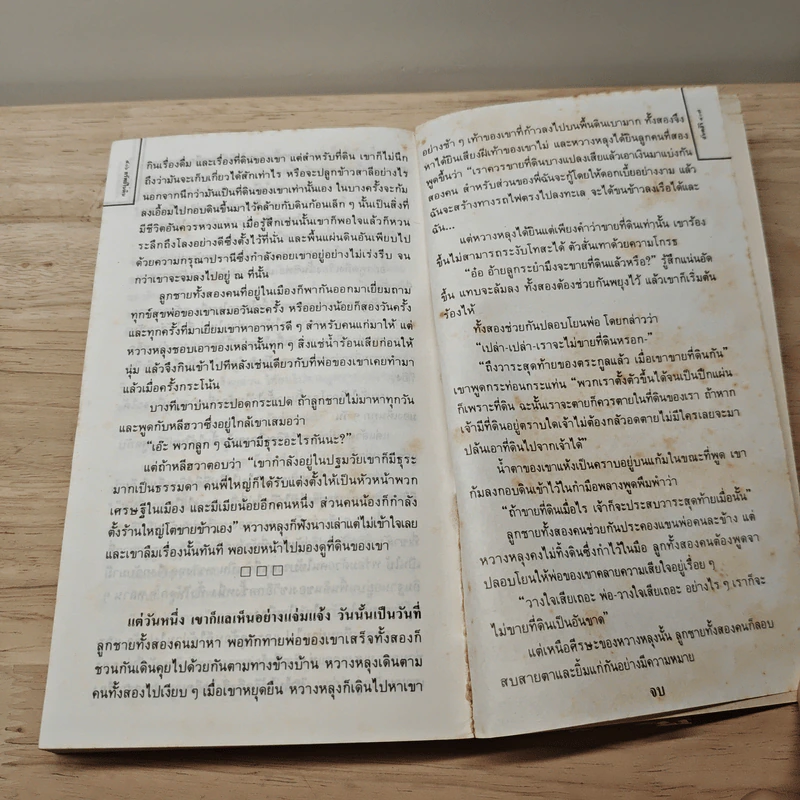 กินเรื่องดื่ม และเรื่องที่ดินของเขา แต่สำหรับที่ดิน เขาก็ไม่นึก
ถึงว่ามันจะเก็บเกี่ยวได้สักเท่าไร หรือจะปลูกข้าวสาลีอย่างไร
นอกจากนึกว่ามันเป็นที่ดินของเขาเท่านั้นเอง ในบางครั้งจะก้ม
ลงเอื้อมไปกอบดินขึ้นมาไว้คล้ายกับดินก้อนเล็ก ๆ นั้นเป็นสิ่งที่
มีชีวิตอันควรหวงแหน เมื่อรู้สึกเช่นนั้นเขาก็พอใจแล้วก็หวน
ระลึกถึงโลงอย่างดีซึ่งตั้งไว้ที่นั่น และพื้นแผ่นดินอันเพียบไป
ด้วยความกรุณาปรานีซึ่งกำลังคอยเขาอยู่อย่างไม่เร่งรีบ จน
กว่าเขาจะจมลงไปอยู่ ณ ที่นั้น
ลูกชายทั้งสองคนที่อยู่ในเมืองก็พากันออกมาเยี่ยมถาม
ทุกข์สุขพ่อของเขาเสมอวันละครั้ง หรืออย่างน้อยก็สองวันครั้ง
และทุกครั้งที่มาเยี่ยมเขาหาอาหารดี ๆ สำหรับคนแก่มาให้ แต่
หวางหลุงชอบเอาของเหล่านั้นทุก ๆ สิ่งแช่น้ำร้อนเสียก่อนให้
นุ่ม แล้วจึงกินเข้าไปทีหลังเช่นเดียวกับที่พ่อของเขาเคยทำมา
แล้วเมื่อครั้งกระโน้น
บางทีเขาบ่นกระปอดกระแปด ถ้าลูกชายไม่มาหาทุกวัน
และพูดกับหลีฮวาซึ่งอยู่ใกล้เขาเสมอว่า
“เอ๊ะ พวกลูก ๆ ฉันเขามีธุระอะไรกันนะ?”
แต่ถ้าหลีฮวาตอบว่า “เขากำลังอยู่ในปฐมวัยเขาก็มีธุระ
มากเป็นธรรมดา คนพี่ใหญ่ก็ได้รับแต่งตั้งให้เป็นหัวหน้าพวก
เศรษฐีในเมือง และมีเมียน้อยอีกคนหนึ่ง ส่วนคนน้องก็กำลัง
ตั้งร้านใหญ่โตขายข้าวเอง” หวางหลุงก็ฟังนางเล่าแต่ไม่เข้าใจเลย
และเขาลืมเรื่องนั้นทันที พอเงยหน้าไปมองดูที่ดินของเขา
□ □ □
แต่วันหนึ่ง เขาก็แลเห็นอย่างแจ่มแจ้ง วันนั้นเป็นวันที่
ลูกชายทั้งสองคนมาหา พอทักทายพ่อของเขาเสร็จทั้งสองก็
ชวนกันเดินคุยไปด้วยกันตามทางข้างบ้าน หวางหลุงเดินตาม
คนทั้งสองไปเงียบ ๆ เมื่อเขาหยุดยืน หวางหลุงก็เดินไปหาเขา
อย่างช้า ๆ เท้าของเขาที่ก้าวลงไปบนพื้นดินเบามาก ทั้งสองจึง
หาได้ยินเสียงฝีเท้าของเขาไม่ และหวางหลุงได้ยินลูกคนที่สอง
พูดขึ้นว่า “เราควรขายที่ดินบางแปลงเสียแล้วเอาเงินมาแบ่งกัน
สองคน สำหรับส่วนของพี่ฉันจะกู้โดยให้ดอกเบี้ยอย่างงาม แล้ว
ฉันจะสร้างทางรถไฟตรงไปลงทะเล จะได้ขนข้าวลงเรือได้และ
ฉัน...
แต่หวางหลุงได้ยินแต่เพียงคำว่าขายที่ดินเท่านั้น เขาร้อง
ขึ้นไม่สามารถระงับโทสะได้ ตัวสั่นเทาด้วยความโกรธ
“อ๋อ อ้ายลูกระยำมึงจะขายที่ดินแล้วหรือ?” รู้สึกแน่นอัด
ขึ้น แทบจะล้มลง ทั้งสองต้องช่วยกันพยุงไว้ แล้วเขาก็เริ่มต้น
ร้องไห้
ทั้งสองช่วยกันปลอบโยนพ่อ โดยกล่าวว่า
“เปล่า-เปล่า-เราจะไม่ขายที่ดินหรอก-”
“ถึงวาระสุดท้ายของตระกูลแล้ว เมื่อเขาขายที่ดินกัน”
เขาพูดกระท่อนกระแท่น “พวกเราตั้งตัวขึ้นได้จนเป็นปึกแผ่น
ก็เพราะที่ดิน ฉะนั้นเราจะตายก็ควรตายในที่ดินของเรา ถ้าหาก
เจ้ามีที่ดินอยู่ตราบใดเจ้าไม่ต้องกลัวอดตายไม่มีใครเลยจะมา
ปล้นเอาที่ดินไปจากเจ้าได้”
น้ำตาของเขาแห้งเป็นคราบอยู่บนแก้มในขณะที่พูด เขา
ก้มลงกอบดินเข้าไว้ในกำมือพลางพูดพึมพำว่า
“ถ้าขายที่ดินเมื่อไร เจ้าก็จะประสบวาระสุดท้ายเมื่อนั้น”
ลูกชายทั้งสองคนช่วยกันประคองแขนพ่อคนละข้าง แต่
หวางหลุงคงไม่ทิ้งดินซึ่งกำไว้ในมือ ลูกทั้งสองคนต้องพูดจา
ปลอบโยนให้พ่อของเขาคลายความเสียใจอยู่เรื่อย ๆ
“วางใจเสียเถอะ พ่อ-วางใจเสียเถอะ อย่างไร ๆ เราก็จะ
ไม่ขายที่ดินเป็นอันขาด”
แต่เหนือศีรษะของหวางหลุงนั้น ลูกชายทั้งสองคนก็ลอบ
สบสายตาและยิ้มแก่กันอย่างมีความหมาย
จบ